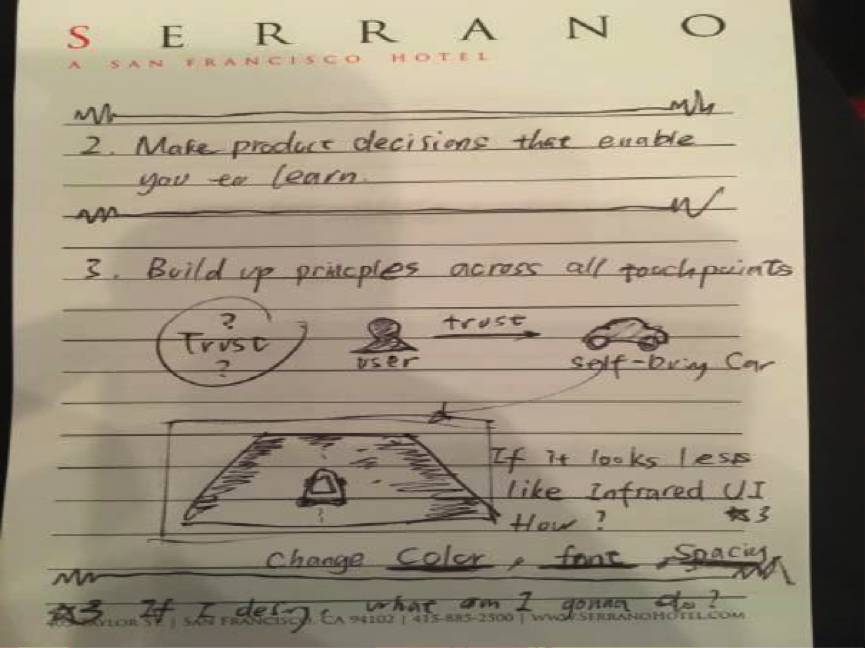 SERRANO
A SAN FRANCISCO HOTEL
2. Make product decisions that enable
you to learn.
3. Build up principles across all touchpoints
?
Trust
?
trust
user
Self-Driving Car
If it looks less
like Infrared UI
How? ☆3
Change Color, font, Spacing
☆3 If I design, what am I gonna do?
405 TAYLOR ST | SAN FRANCISCO, CA 94102 | 415-885-2500 | WWW.SERRANOHOTEL.COM